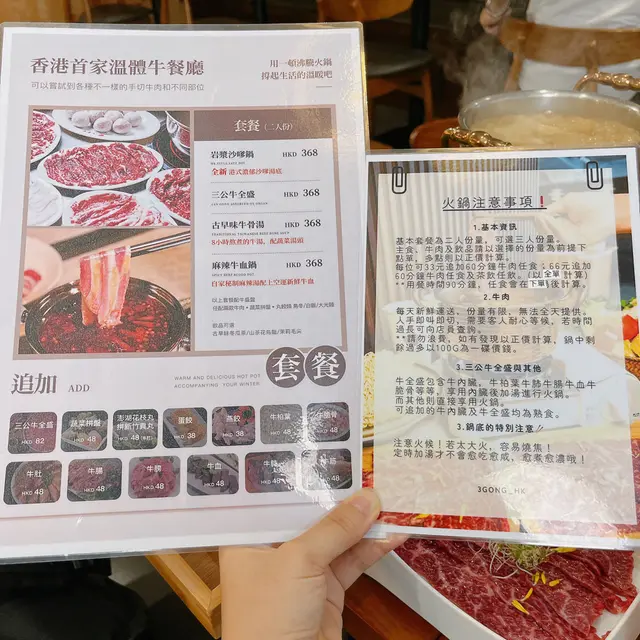 香港首家溫體牛餐廳
可以嘗試到各種不一樣的手切牛肉和不同部位
用一頓沸騰火鍋
撐起生活的溫暖吧
套餐 (二人份)
岩漿沙嗲鍋 HKD 368
全新 港式濃郁沙嗲湯底
三公牛全盛 HKD 368
古早味牛骨湯 HKD 368
TRADITIONAL TAIWANESE BEEF BONE SOUP
8小時熬煮的牛湯，配蔬菜湯頭
麻辣牛血鍋 HKD 368
自家秘制麻辣湯配上空運新鮮牛血
以上套餐配牛盛盤
飲品可選
古早味冬瓜茶/山茶花烏龍/茉莉毛尖
套餐
WARM AND DELICIOUS HOT POT
ACCOMPANYING YOUR WINTER.
追加 ADD
三公牛全盛 HKD 82
蔬菜拼盤 HKD 48
澎湖花枝丸
拼新竹貢丸
HKD 48
蛋餃 HKD 38
燕餃 HKD 38
牛柏葉 HKD 48
HKD 48
牛肚 HKD 48
牛腸 HKD 48
牛膀 HKD 48
牛血 HKD 48
HKD 48
HKD 48
火鍋注意事項!
1.基本資訊
基本套餐為二人份量，可選三人份量。
主食、牛肉及飲品請以選擇的份量為前提下
點單，多點則以正價計算。
每位可33元追加60分鐘牛肉任食；66元追加
60分鐘牛肉任食及茶飲任飲。(以全單計算)
**用餐時間90分鐘，任食會在下單後計算。
2.牛肉
每天新鮮運送，份量有限，無法全天提供。
人手即叫即切，需要客人耐心等候，若時間
過長可向店員查詢。
**請勿浪費，如有發現以正價計算，鍋中剩
餘過多以100G為一碟價錢。
3.三公牛全盛與其他
牛全盛包含牛內臟，牛柏葉牛肺牛腸牛血牛
脆骨等等，享用內臟後加湯進行火鍋。
而其他則直接享用火鍋。
可追加的牛內臟及牛全盛均為熟食。
3.鍋底的特別注意!!
注意火侯！若太大火，容易燒焦！
定時加湯才不會愈吃愈咸，愈煮愈濃哦！
3GONG_HK